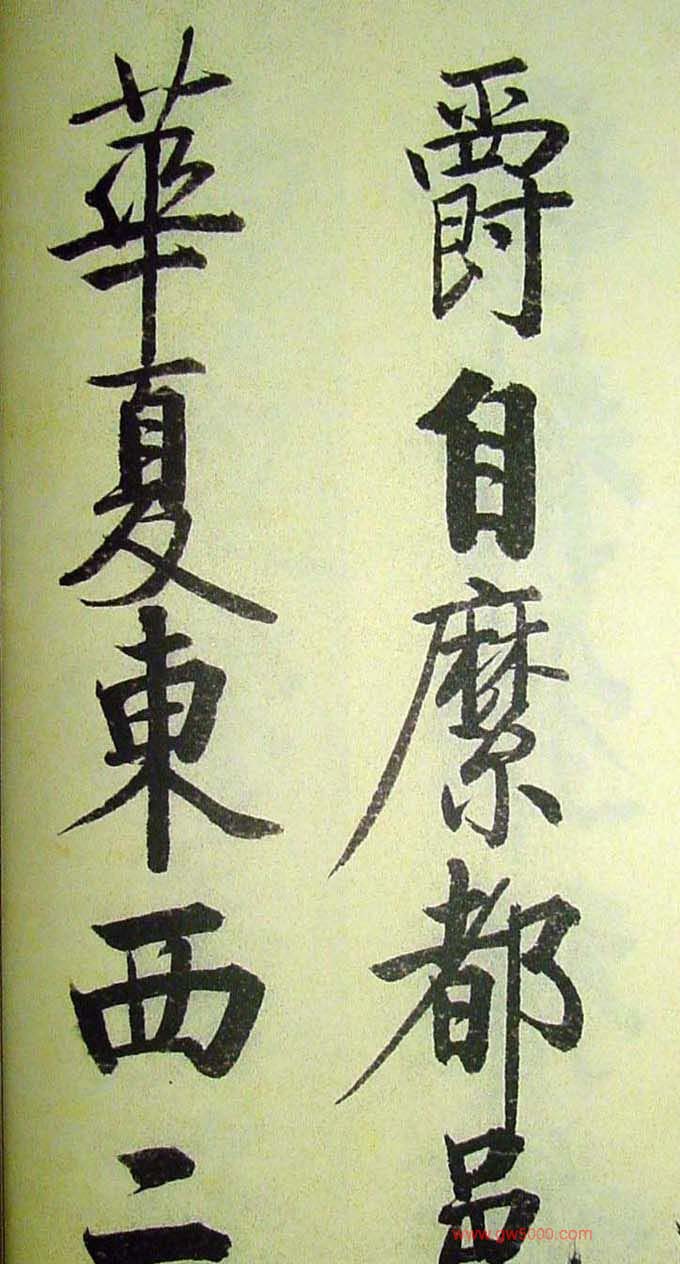 爵自縻都邑
華夏東西二
www.gw5000.com